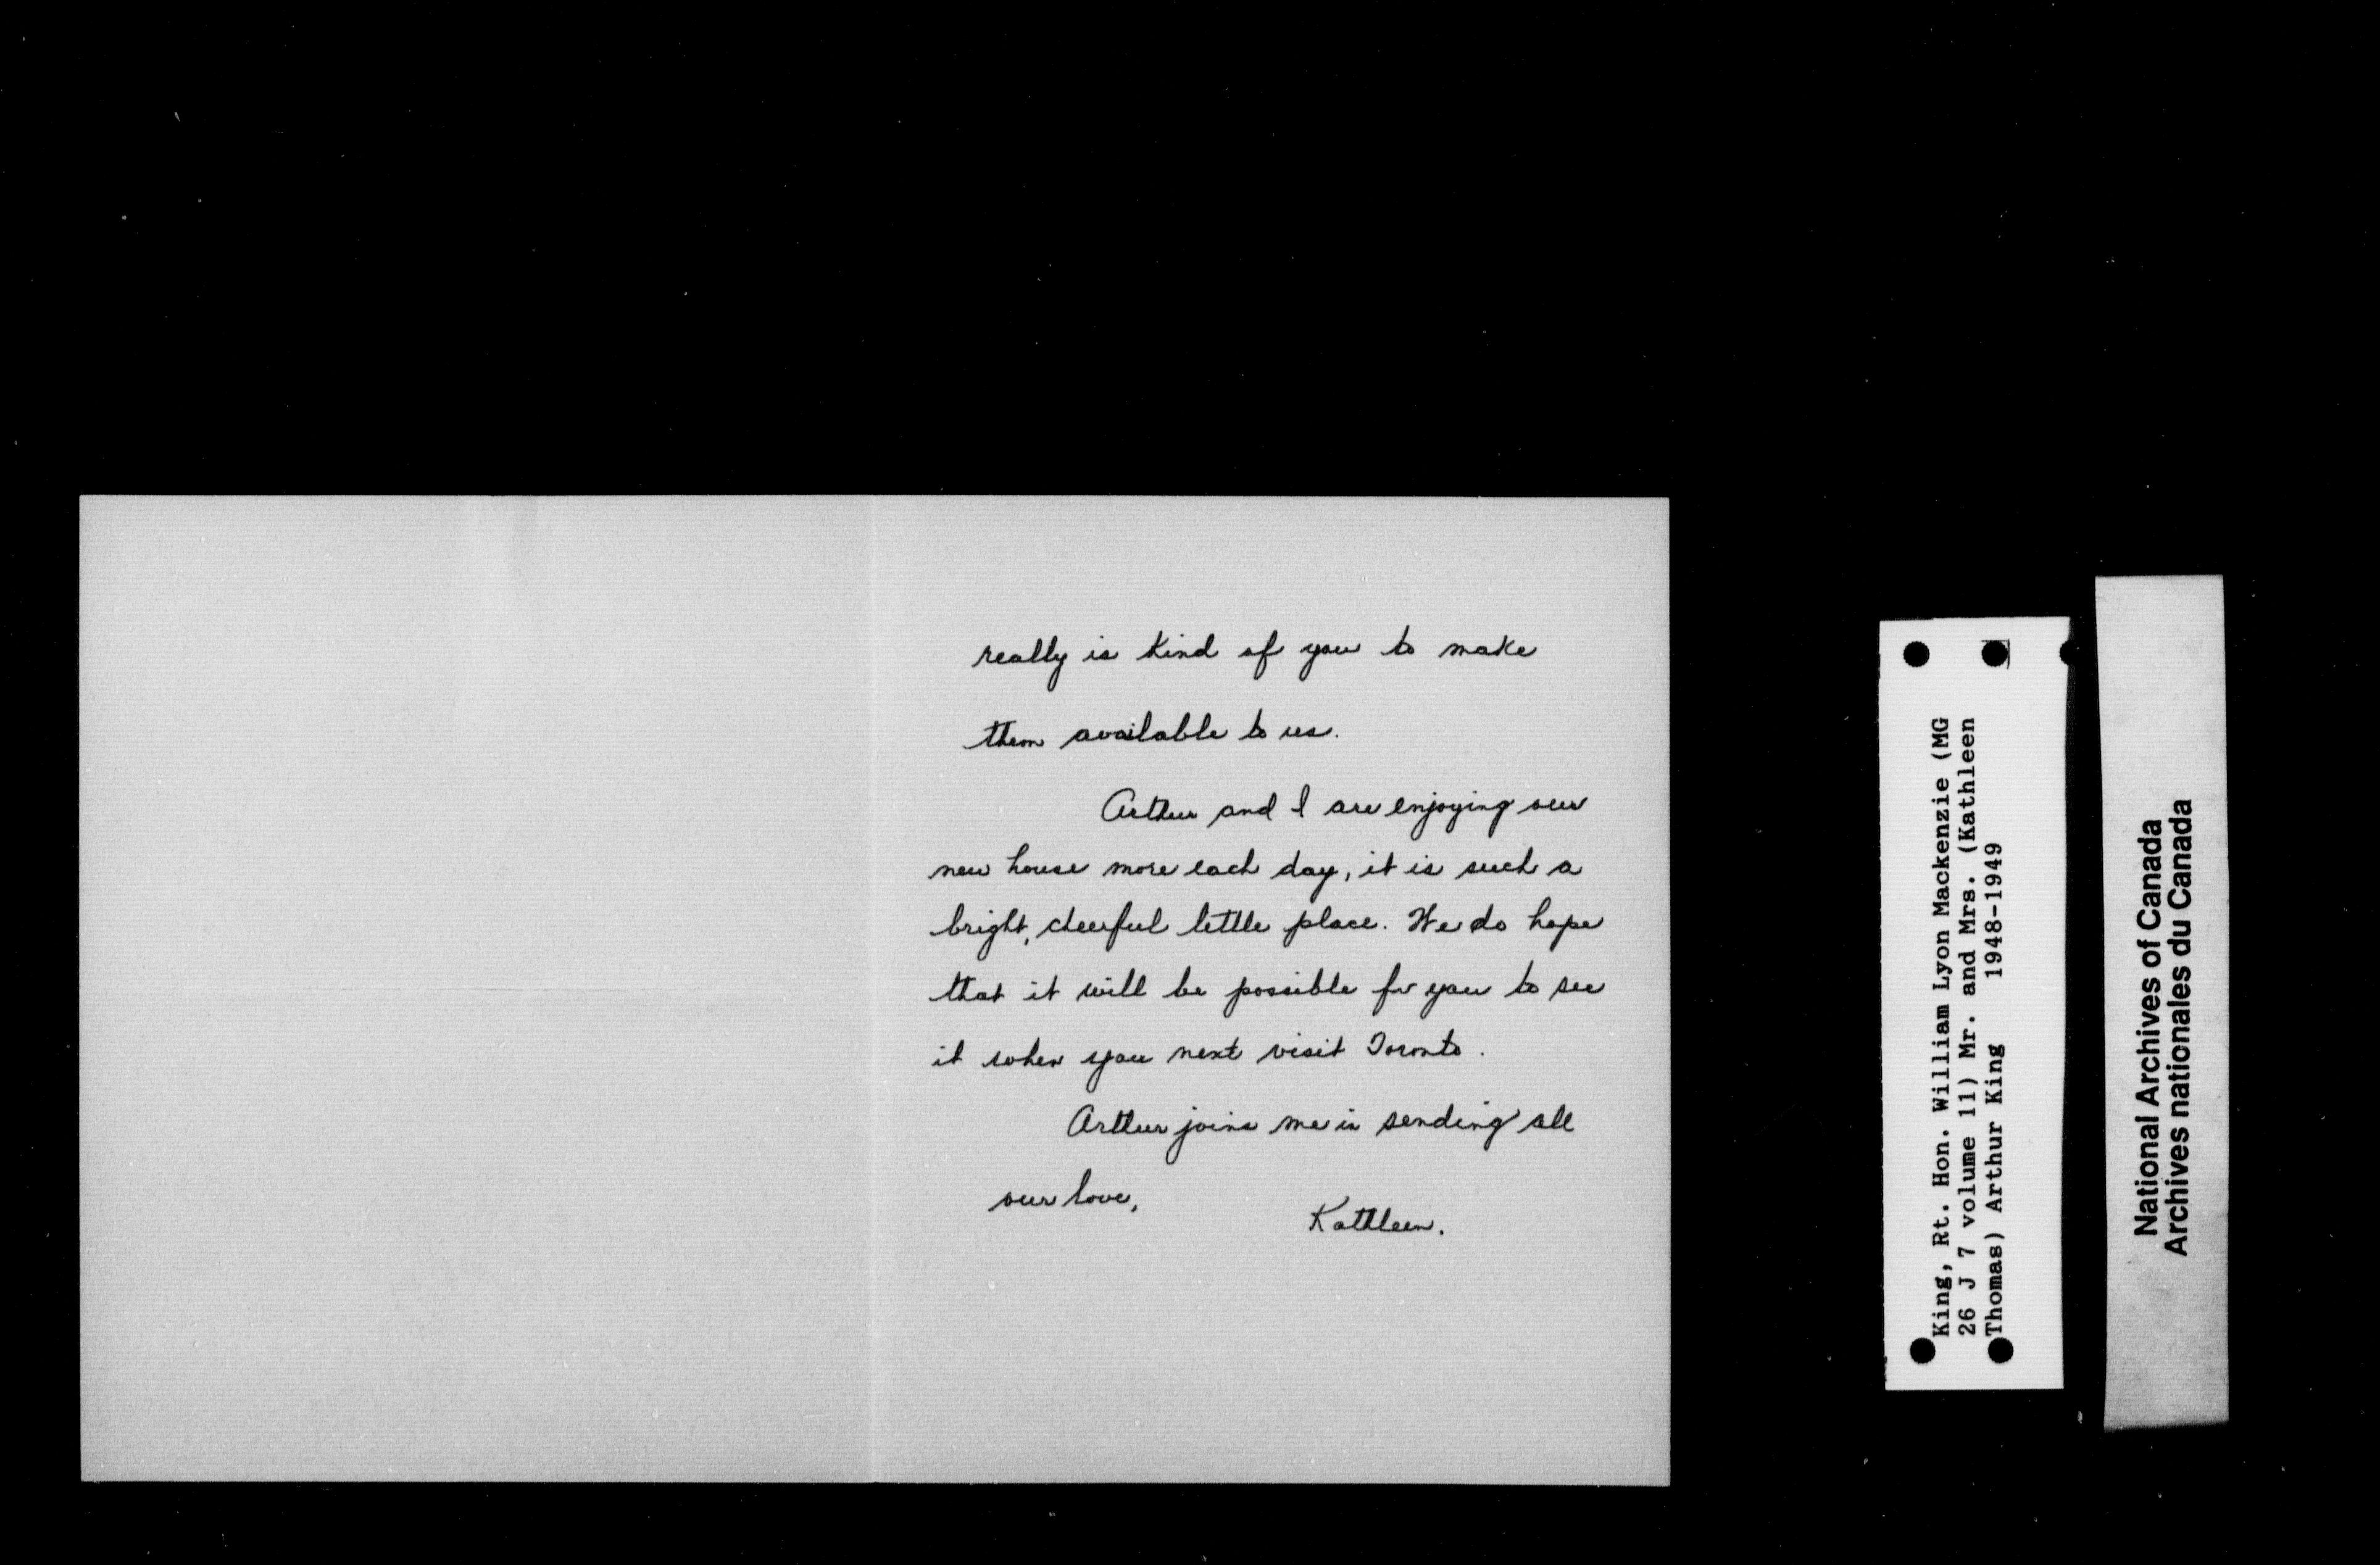 really is kind of you to make
them available to us.
Arthur and I are enjoying our
new house more each day, it is such a
bright, cheerful little place. We do hope
that it will be possible for you to see
it when you next visit Toronto.
Arthur joins me in sending all
our love,
Kathleen.
King, Rt. Hon. William Lyon Mackenzie (MG
26 J 7 volume 11) Mr. and Mrs. (Kathleen
Thomas) Arthur King 1948-1949
National Archives of Canada
Archives nationales du Canada